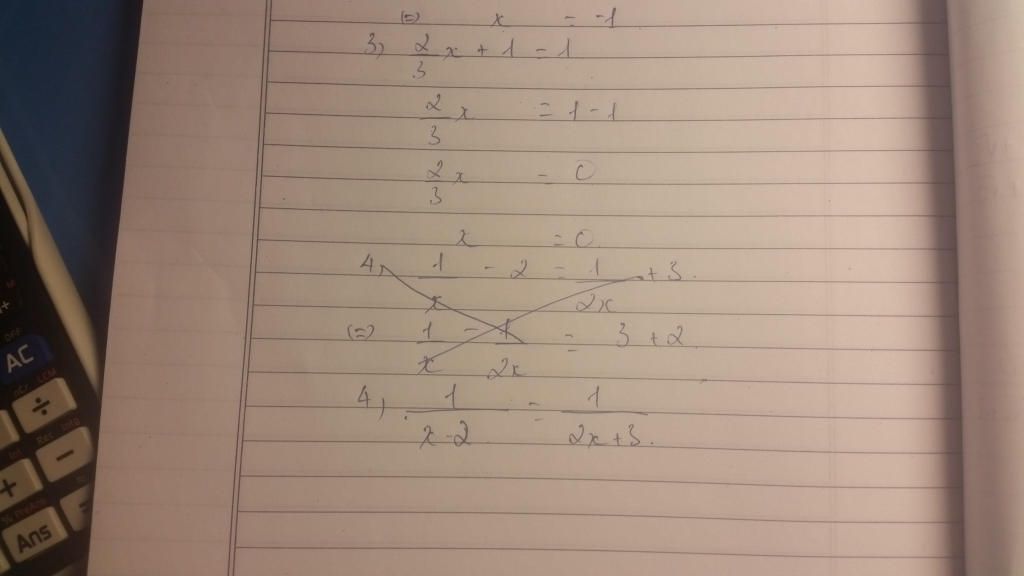 (=) x = -1
3) 2/3 x + 1 = 1
2/3 x = 1 - 1
2/3 x = 0
x = 0
4) 1/x - 2 = 1/2x + 3.
(=) 1/x - 1/2x = 3 + 2
4) 1/x-2 = 1/2x+3.
AC
÷
-
+
=
Ans